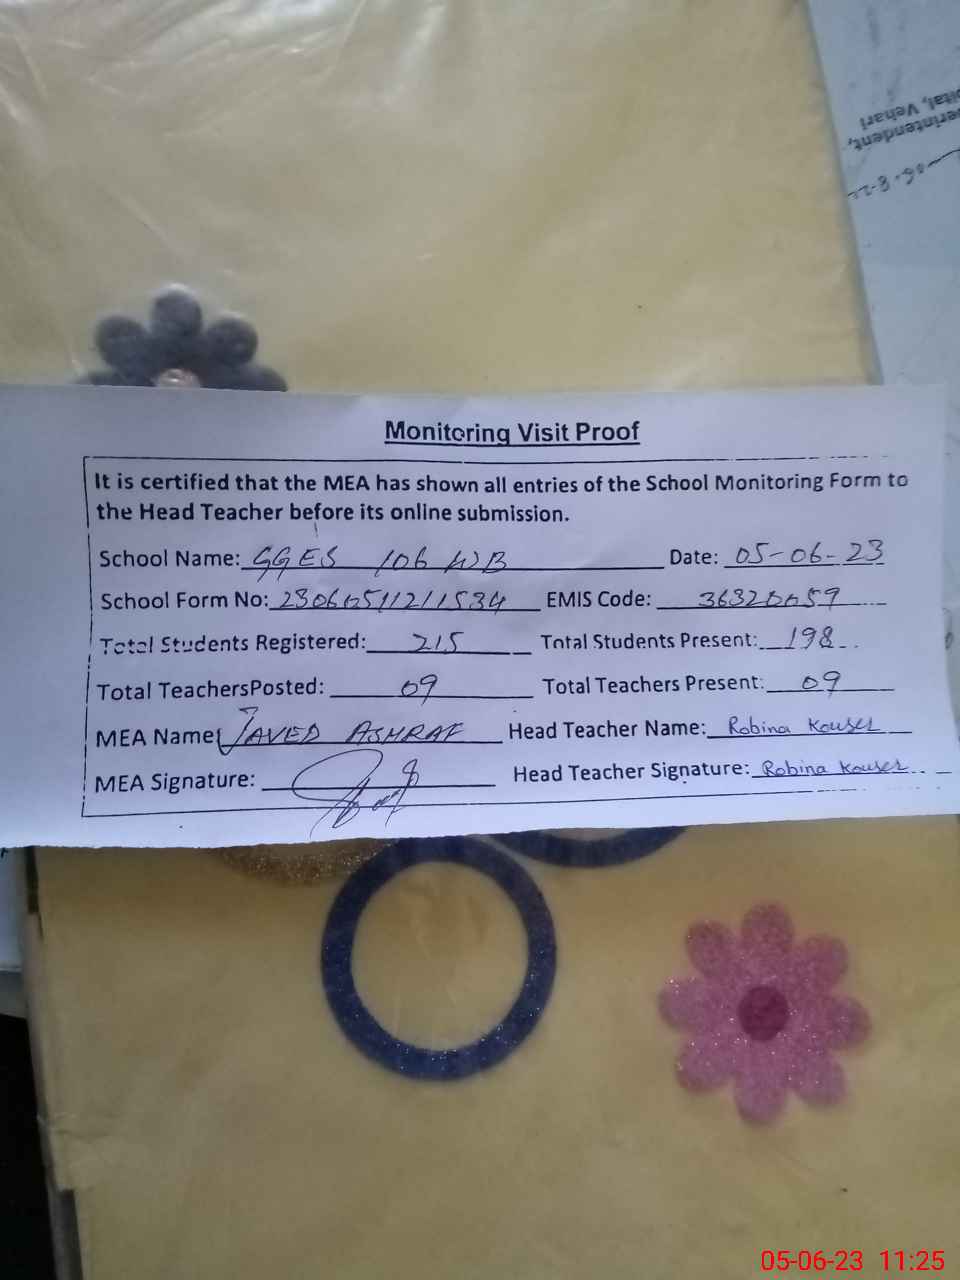 pital, Vehari
erintendent,
Monitoring Visit Proof
It is certified that the MEA has shown all entries of the School Monitoring Form to
the Head Teacher before its online submission.
School Name: GGES 106 WB Date: 05-06-23
School Form No: EMIS Code:
Total Students Registered: 215 Total Students Present: 198
Total TeachersPosted: 09 Total Teachers Present: 09
MEA Name: JAVED ASHRAF Head Teacher Name: Robina Kouser
MEA Signature: Head Teacher Signature: Robina Kouser
05-06-23 11:25